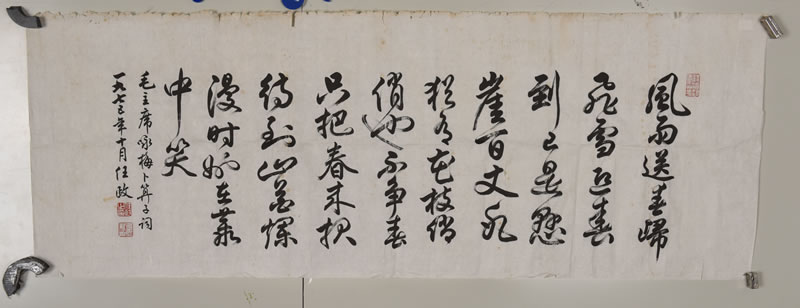 風雨送春歸
飛雪迎春
到已是懸
崖百丈冰
猶有花枝俏
俏也不争春
只把春来报
待到山花爛
漫时她在叢
中笑
毛主席咏梅卜算子词
一九七三年十月任政